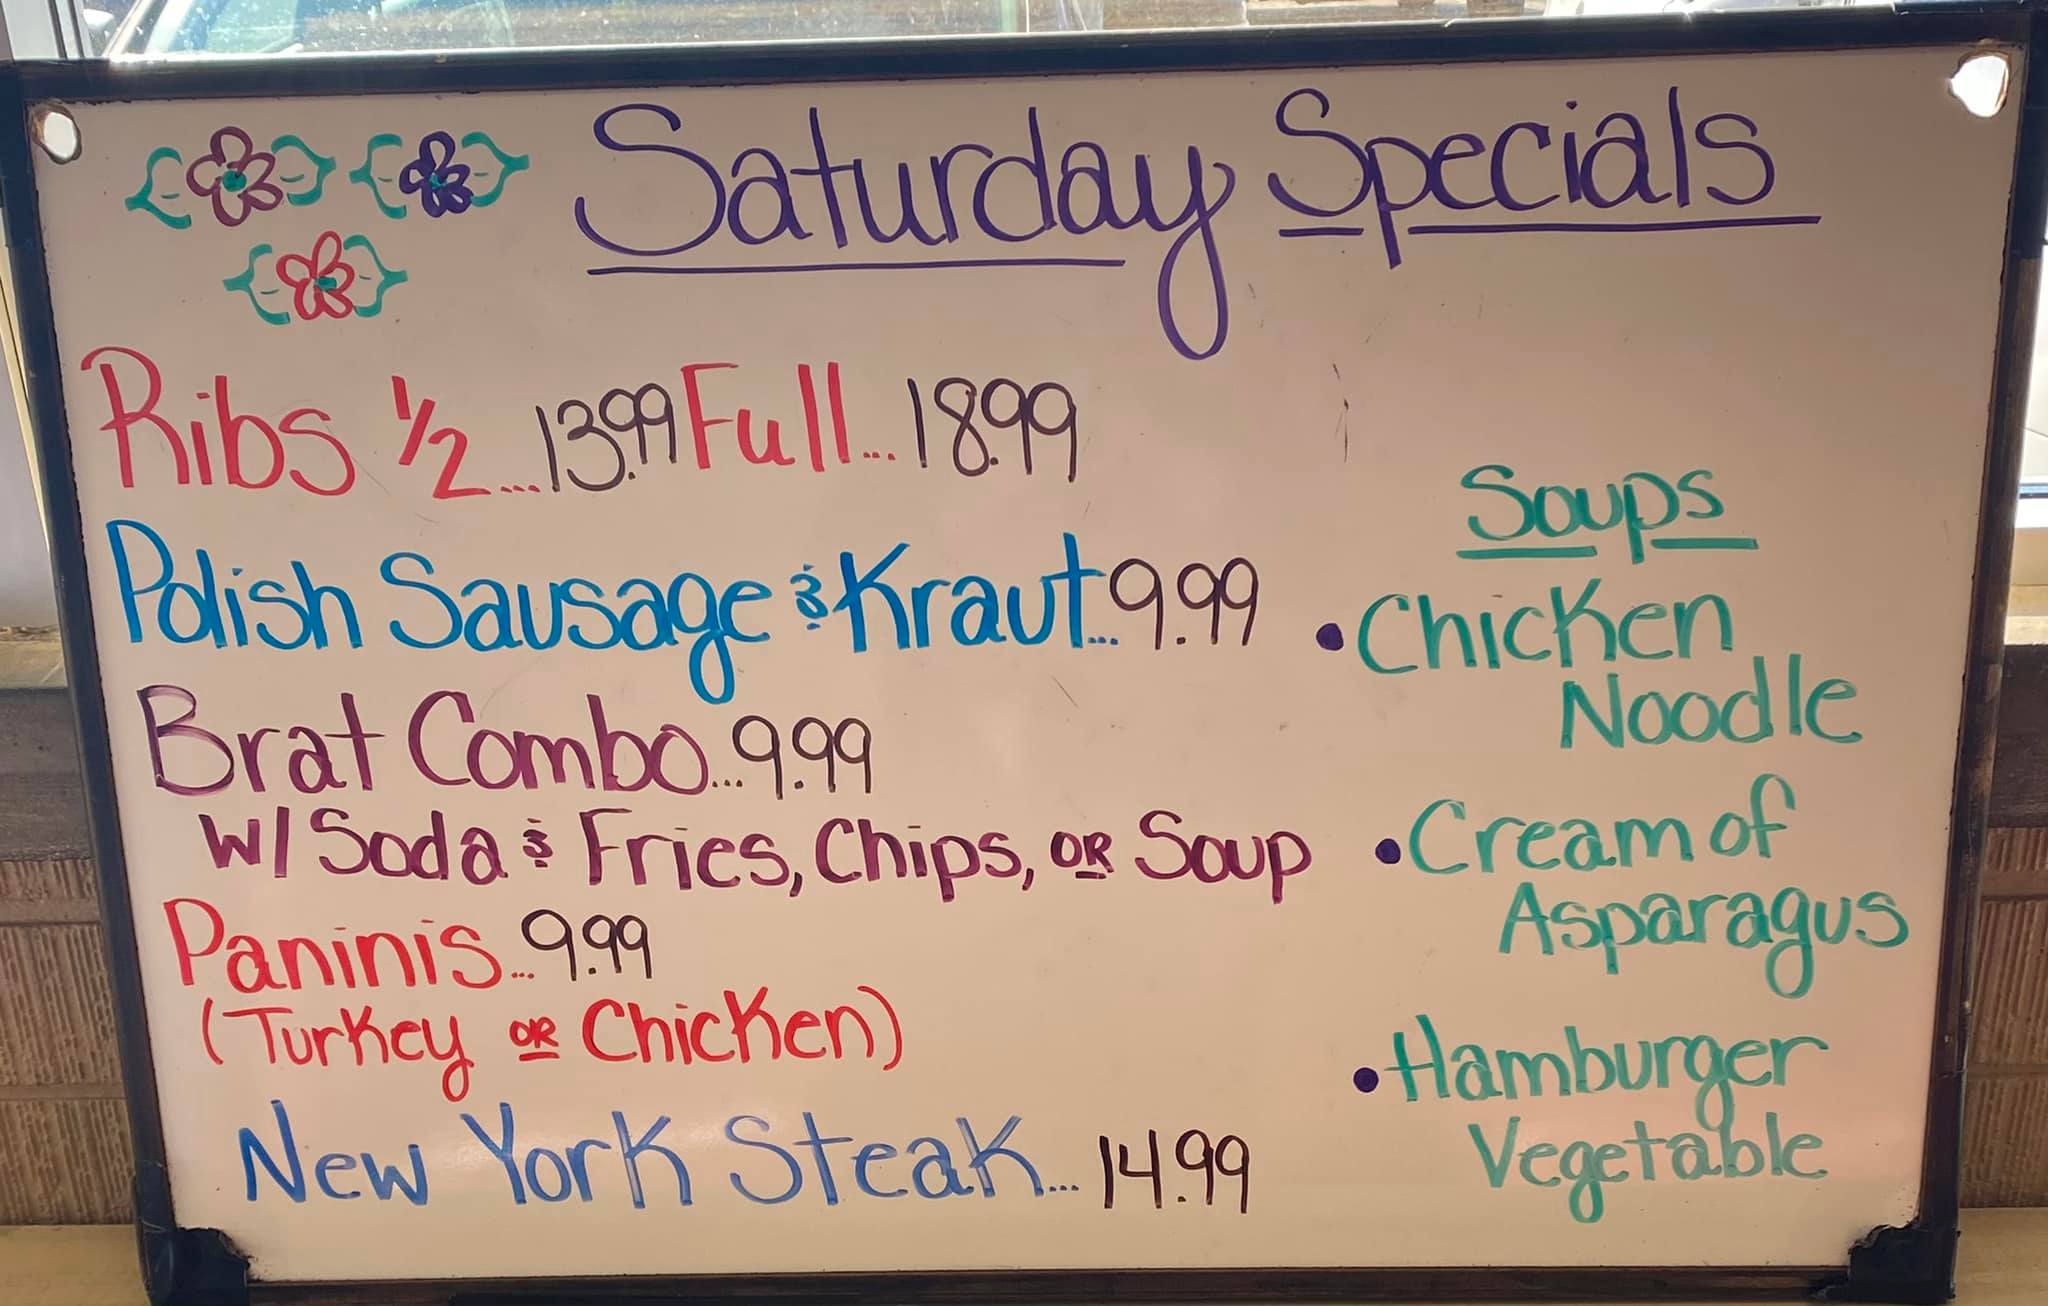 Saturday Specials
Ribs 1/2...13.99 Full...18.99
Polish Sausage & Kraut...9.99
Brat Combo...9.99
W/ Soda & Fries, Chips, OR Soup
Paninis...9.99
(Turkey OR Chicken)
New York Steak...14.99
Soups
• Chicken
Noodle
• Cream of
Asparagus
• Hamburger
Vegetable